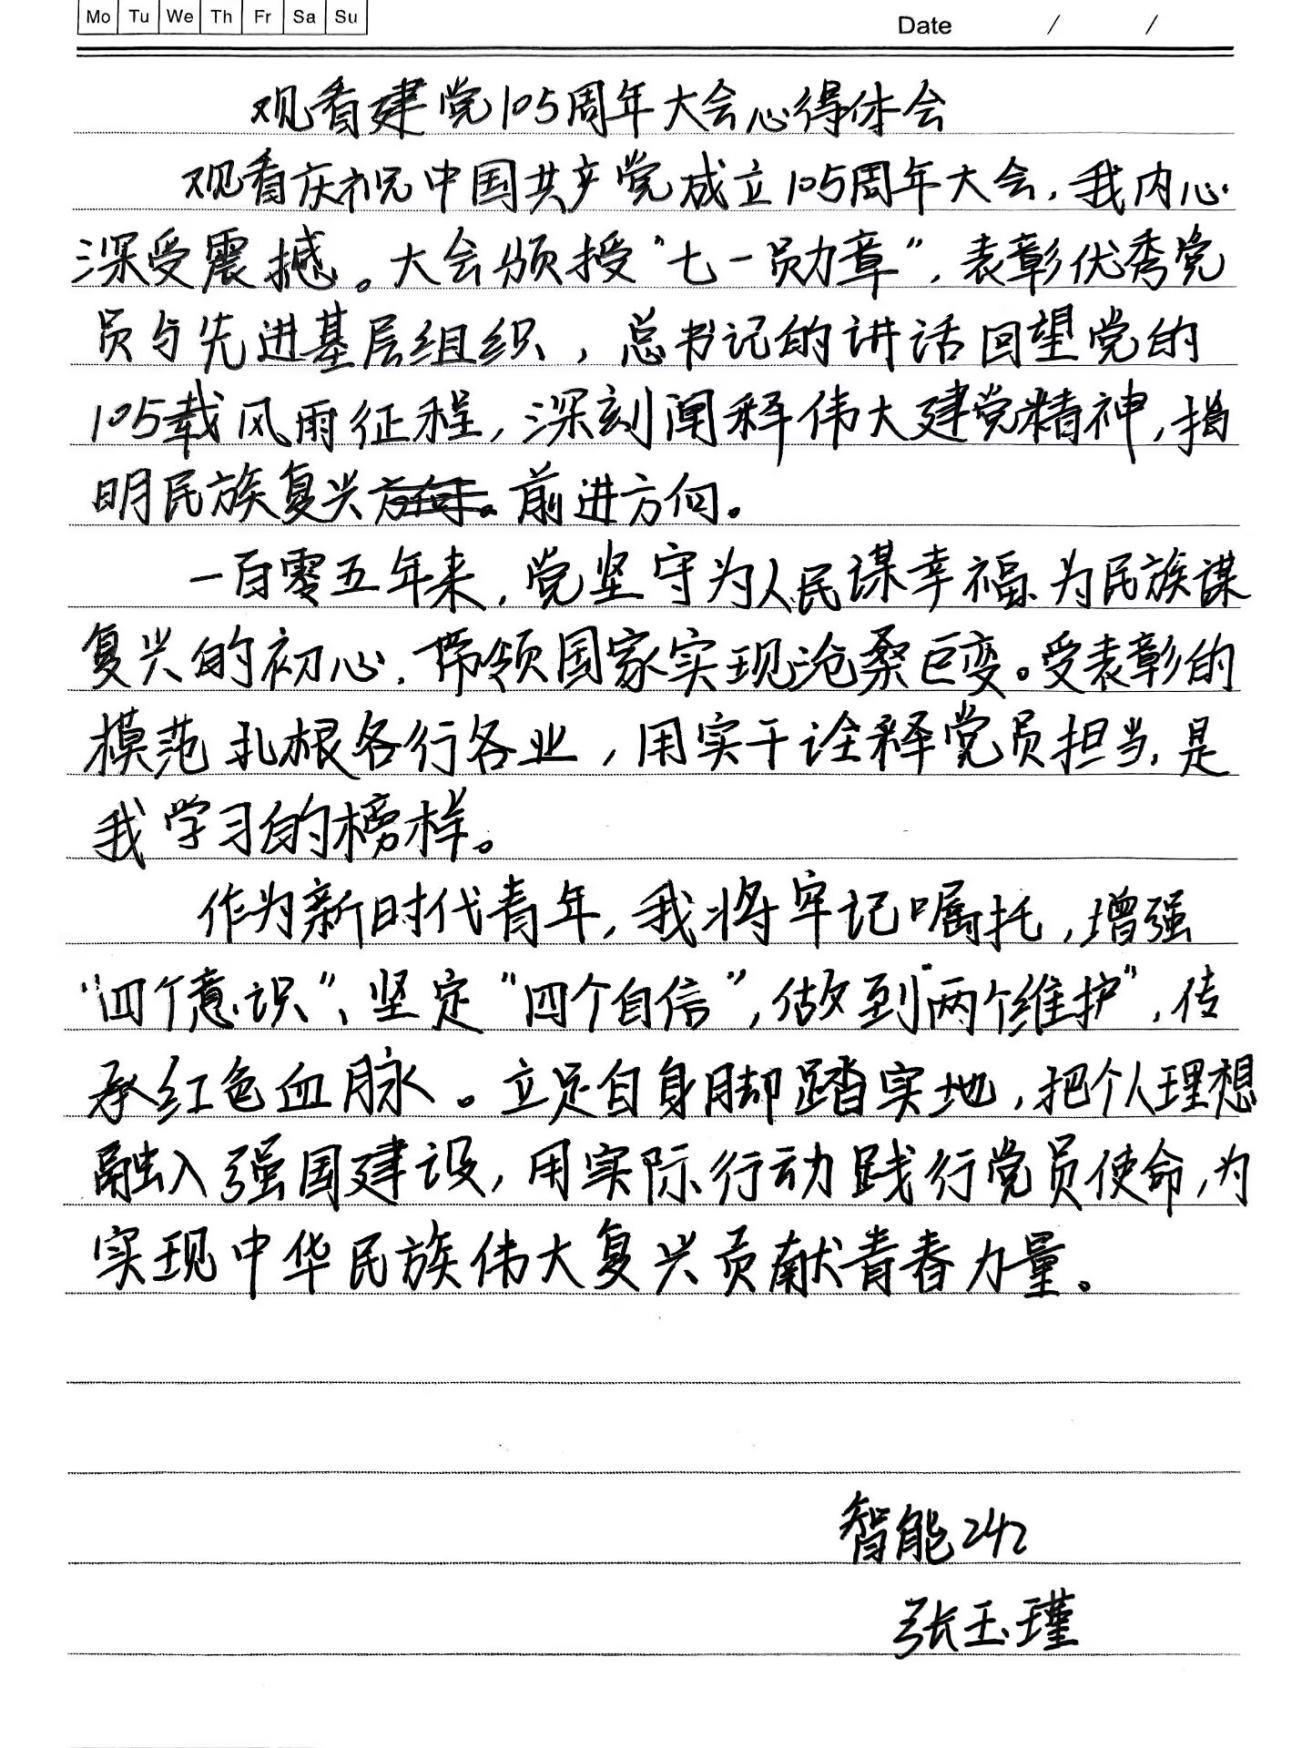 Mo Tu We Th Fr Sa Su
Date / /
观看建党105周年大会心得体会
观看庆祝中国共产党成立105周年大会，我内心
深受震撼。大会颁授“七一勋章”，表彰优秀党
员与先进基层组织，总书记的讲话回望党的
105载风雨征程，深刻阐释伟大建党精神，指
明民族复兴前进方向。
一百零五年来，党坚守为人民谋幸福、为民族谋
复兴的初心，带领国家实现沧桑巨变。受表彰的
模范扎根各行各业，用实干诠释党员担当，是
我学习的榜样。
作为新时代青年，我将牢记嘱托，增强
“四个意识”、坚定“四个自信”，做到“两个维护”，传
承红色血脉。立足自身脚踏实地，把个人理想
融入强国建设，用实际行动践行党员使命，为
实现中华民族伟大复兴贡献青春力量。
智能242
张玉瑾